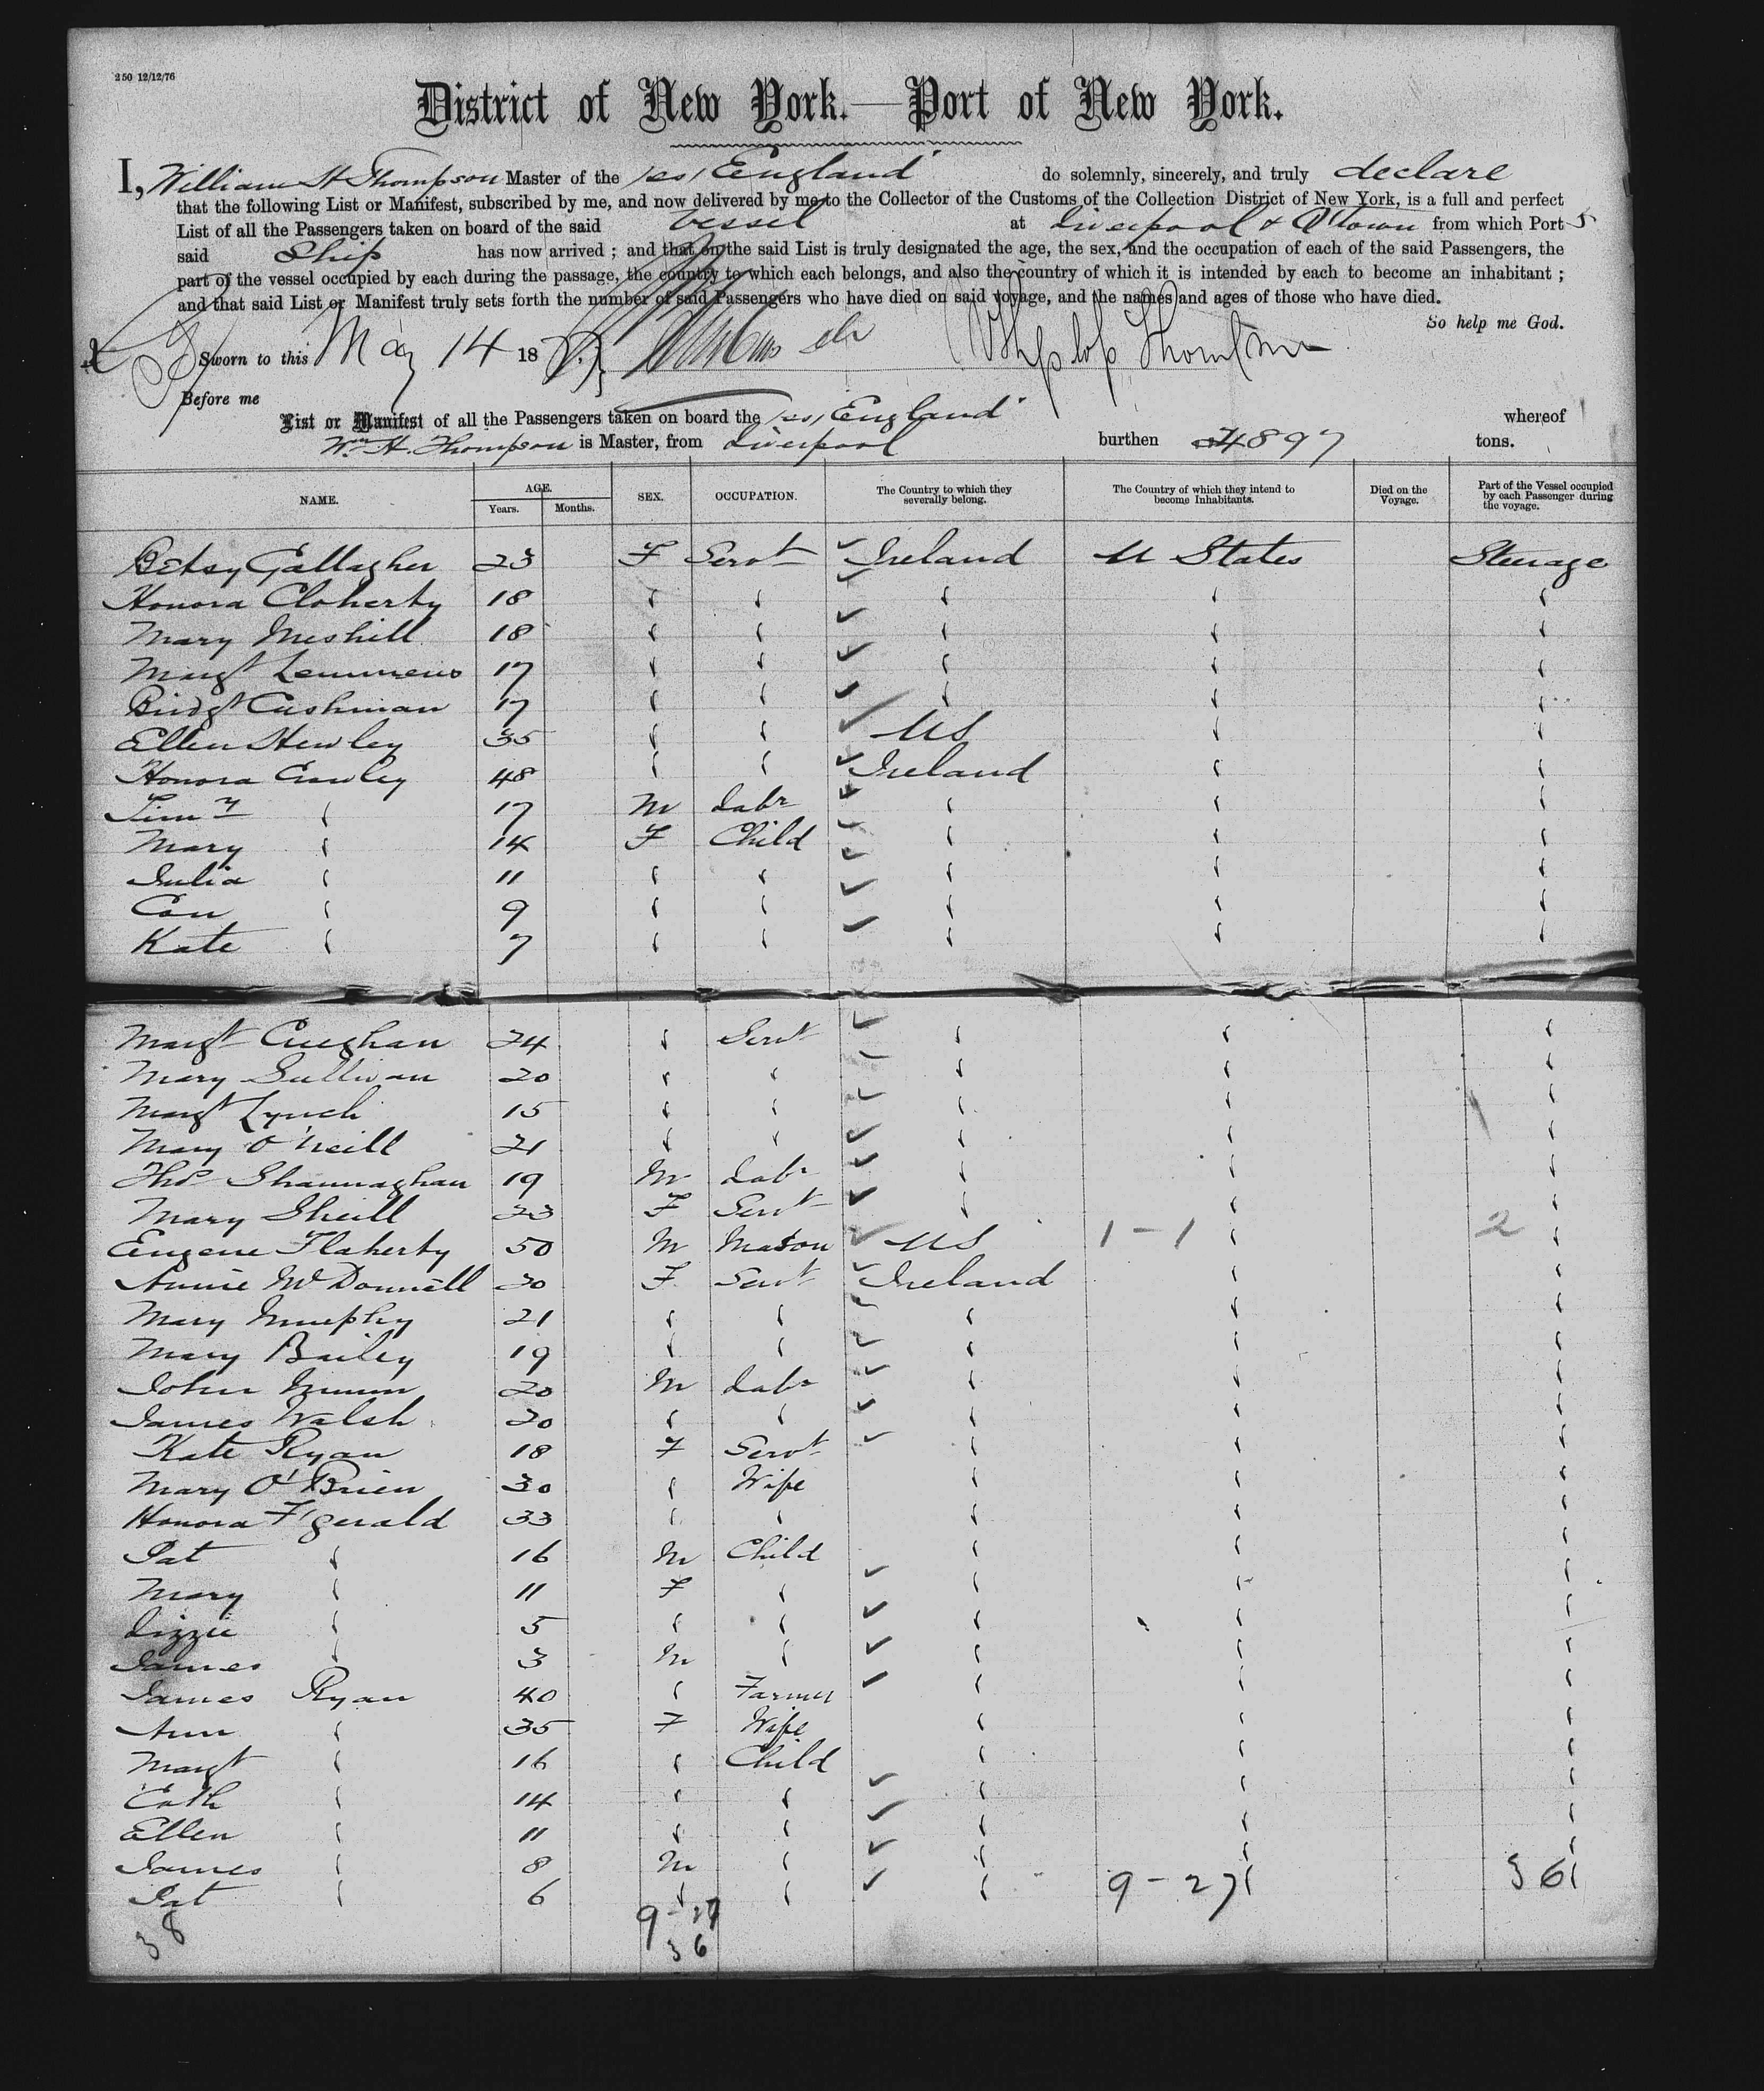 250 12/12/76
District of New York.—Port of New York.
I, William H Thompson Master of the /ss/ England do solemnly, sincerely, and truly declare
that the following List or Manifest, subscribed by me, and now delivered by me to the Collector of the Customs of the Collection District of New York, is a full and perfect
List of all the Passengers taken on board of the said vessel at Liverpool & Qtown from which Port s
said Ship has now arrived ; and that on the said List is truly designated the age, the sex, and the occupation of each of the said Passengers, the
part of the vessel occupied by each during the passage, the country to which each belongs, and also the country of which it is intended by each to become an inhabitant ;
and that said List or Manifest truly sets forth the number of said Passengers who have died on said voyage, and the names and ages of those who have died.
So help me God.
Sworn to this May 14 18 Thompson
Before me
List or Manifest of all the Passengers taken on board the /ss/ England whereof
Wm H. Thompson is Master, from Liverpool burthen 4897 tons.
NAME. AGE. Years. Months. SEX. OCCUPATION. The Country to which they severally belong. The Country of which they intend to become Inhabitants. Died on the Voyage. Part of the Vessel occupied by each Passenger during the voyage.
Betsy Gallagher 23 F Servt Ireland U States Steerage
Honora Cloherty 18 " " " " "
Mary Meshill 18 " " " " "
Margt 17 " " " " "
Bridgt Cushman 17 " " " " "
Ellen Hewley 35 " " US " "
Honora Crowley 48 " " Ireland " "
Timy " 17 M Labr " " "
Mary " 14 F Child " " "
Julia " 11 " " " " "
Con " 9 " " " " "
Kate " 7 " " " " "
Margt Cueghan 24 " Servt " " "
Mary Sullivan 20 " " " " "
Margt Lynch 15 " " " " "
Mary O'Neill 21 " " " " "
Thos Shannaghan 19 M Labr " " "
Mary Sheill 23 F Servt " " "
Eugene Flaherty 50 M Mason US 1-1 " 2 "
Annie McDonnell 30 F Servt Ireland " "
Mary Murphy 21 " " " " "
Mary Bailey 19 " " " " "
John 20 M Labr " " "
James Walsh 20 " " " " "
Kate Ryan 18 F Servt " " "
Mary O'Brien 30 " Wife " " "
Honora F'gerald 33 " " " " "
Pat " 16 M Child " " "
Mary " 11 F " " " "
Lizzie " 5 " " " " "
James " 3 M " " " "
James Ryan 40 " Farmer " " "
Ann " 35 F Wife " " "
Margt " 16 " Child " " "
Cath " 14 " " " " "
Ellen " 11 " " " " "
James " 8 M " " " "
Pat " 6 " " " 9-27 " 36 "
38 9-27
36